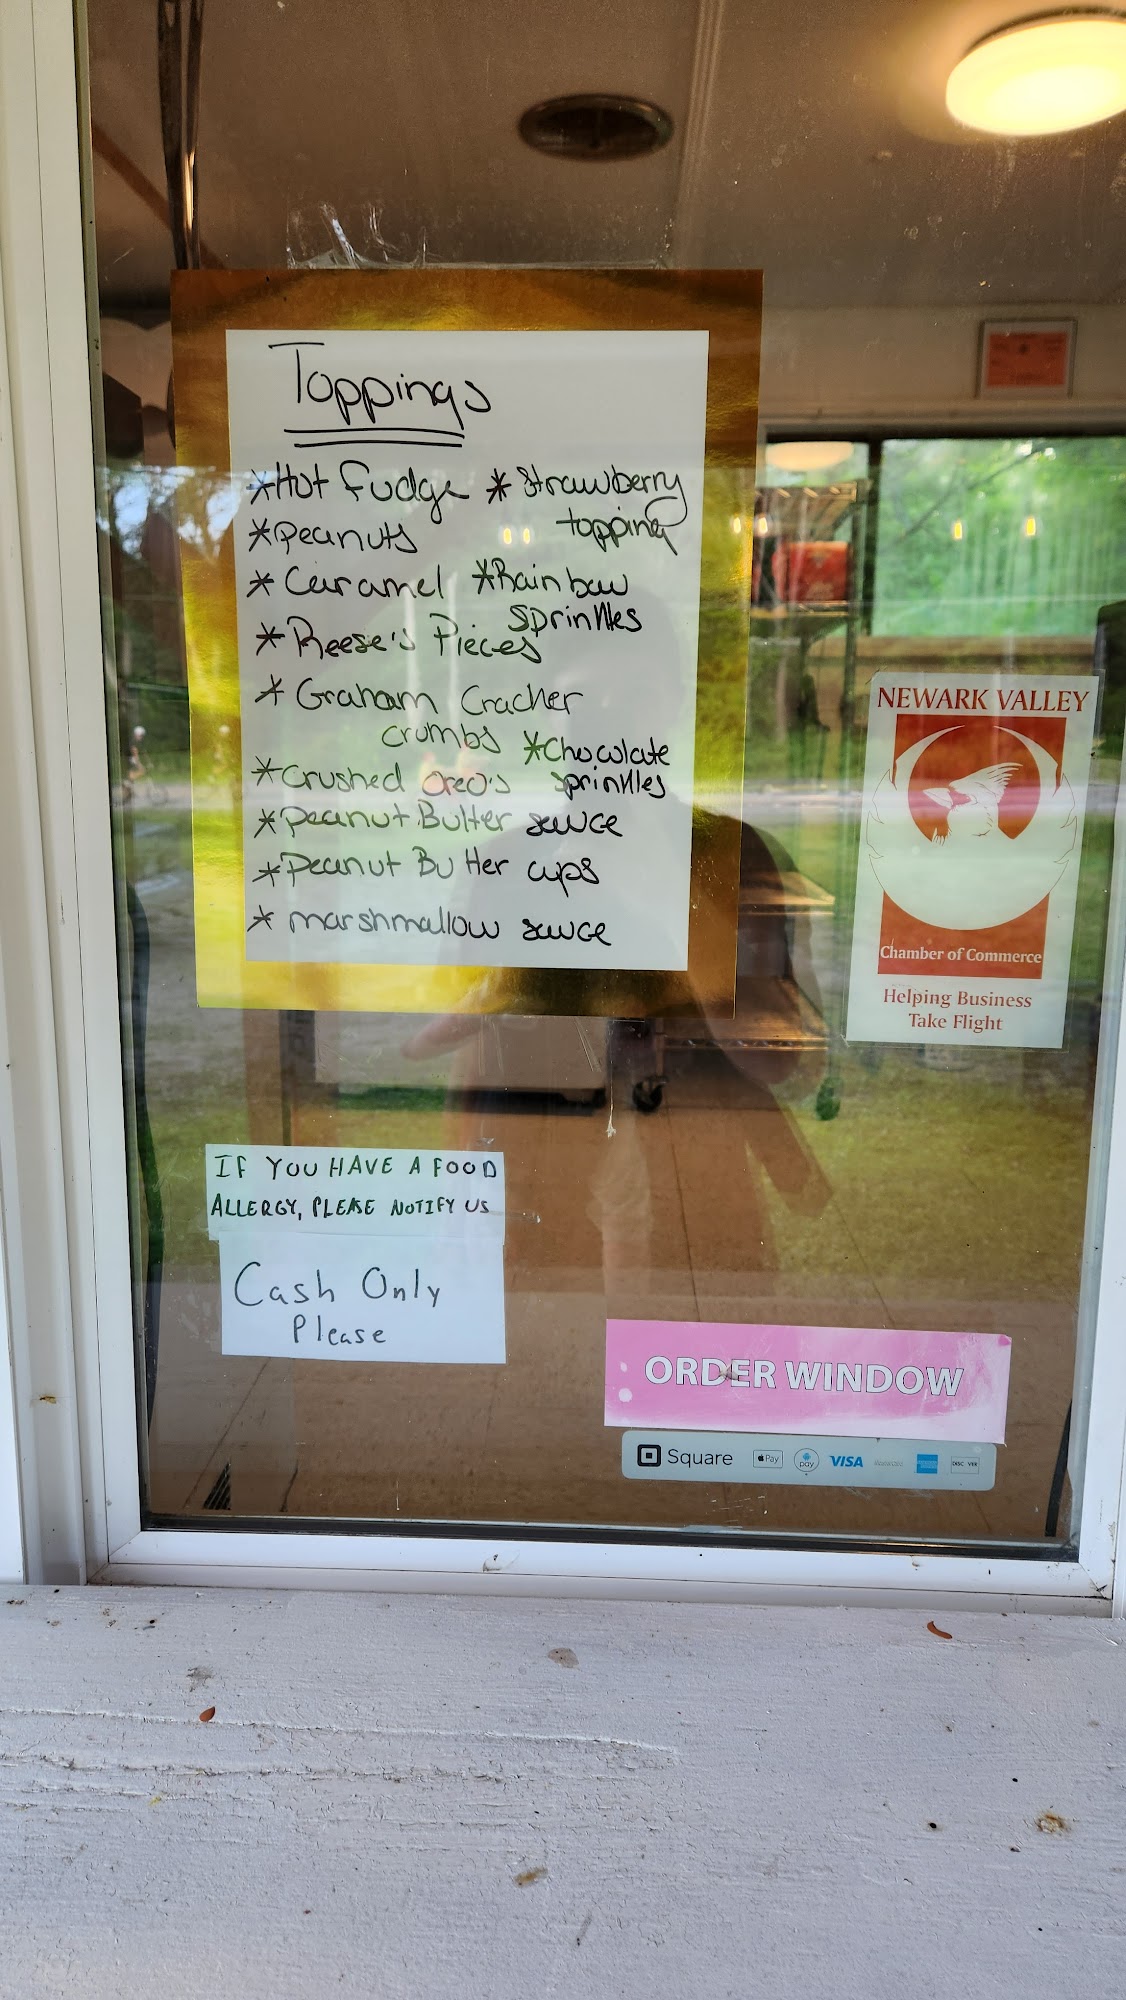 Toppings
*Hot Fudge *Strawberry
topping
*Peanuts
*Caramel *Rainbow
sprinkles
*Reese's Pieces
*Graham Cracker
crumbs
*Chocolate
sprinkles
*Crushed Oreo's
*Peanut Butter sauce
*Peanut Butter cups
*marshmallow sauce
NEWARK VALLEY
Chamber of Commerce
Helping Business
Take Flight
IF YOU HAVE A FOOD
ALLERGY, PLEASE NOTIFY US
Cash Only
Please
ORDER WINDOW
Square Pay pay VISA DISCOVER